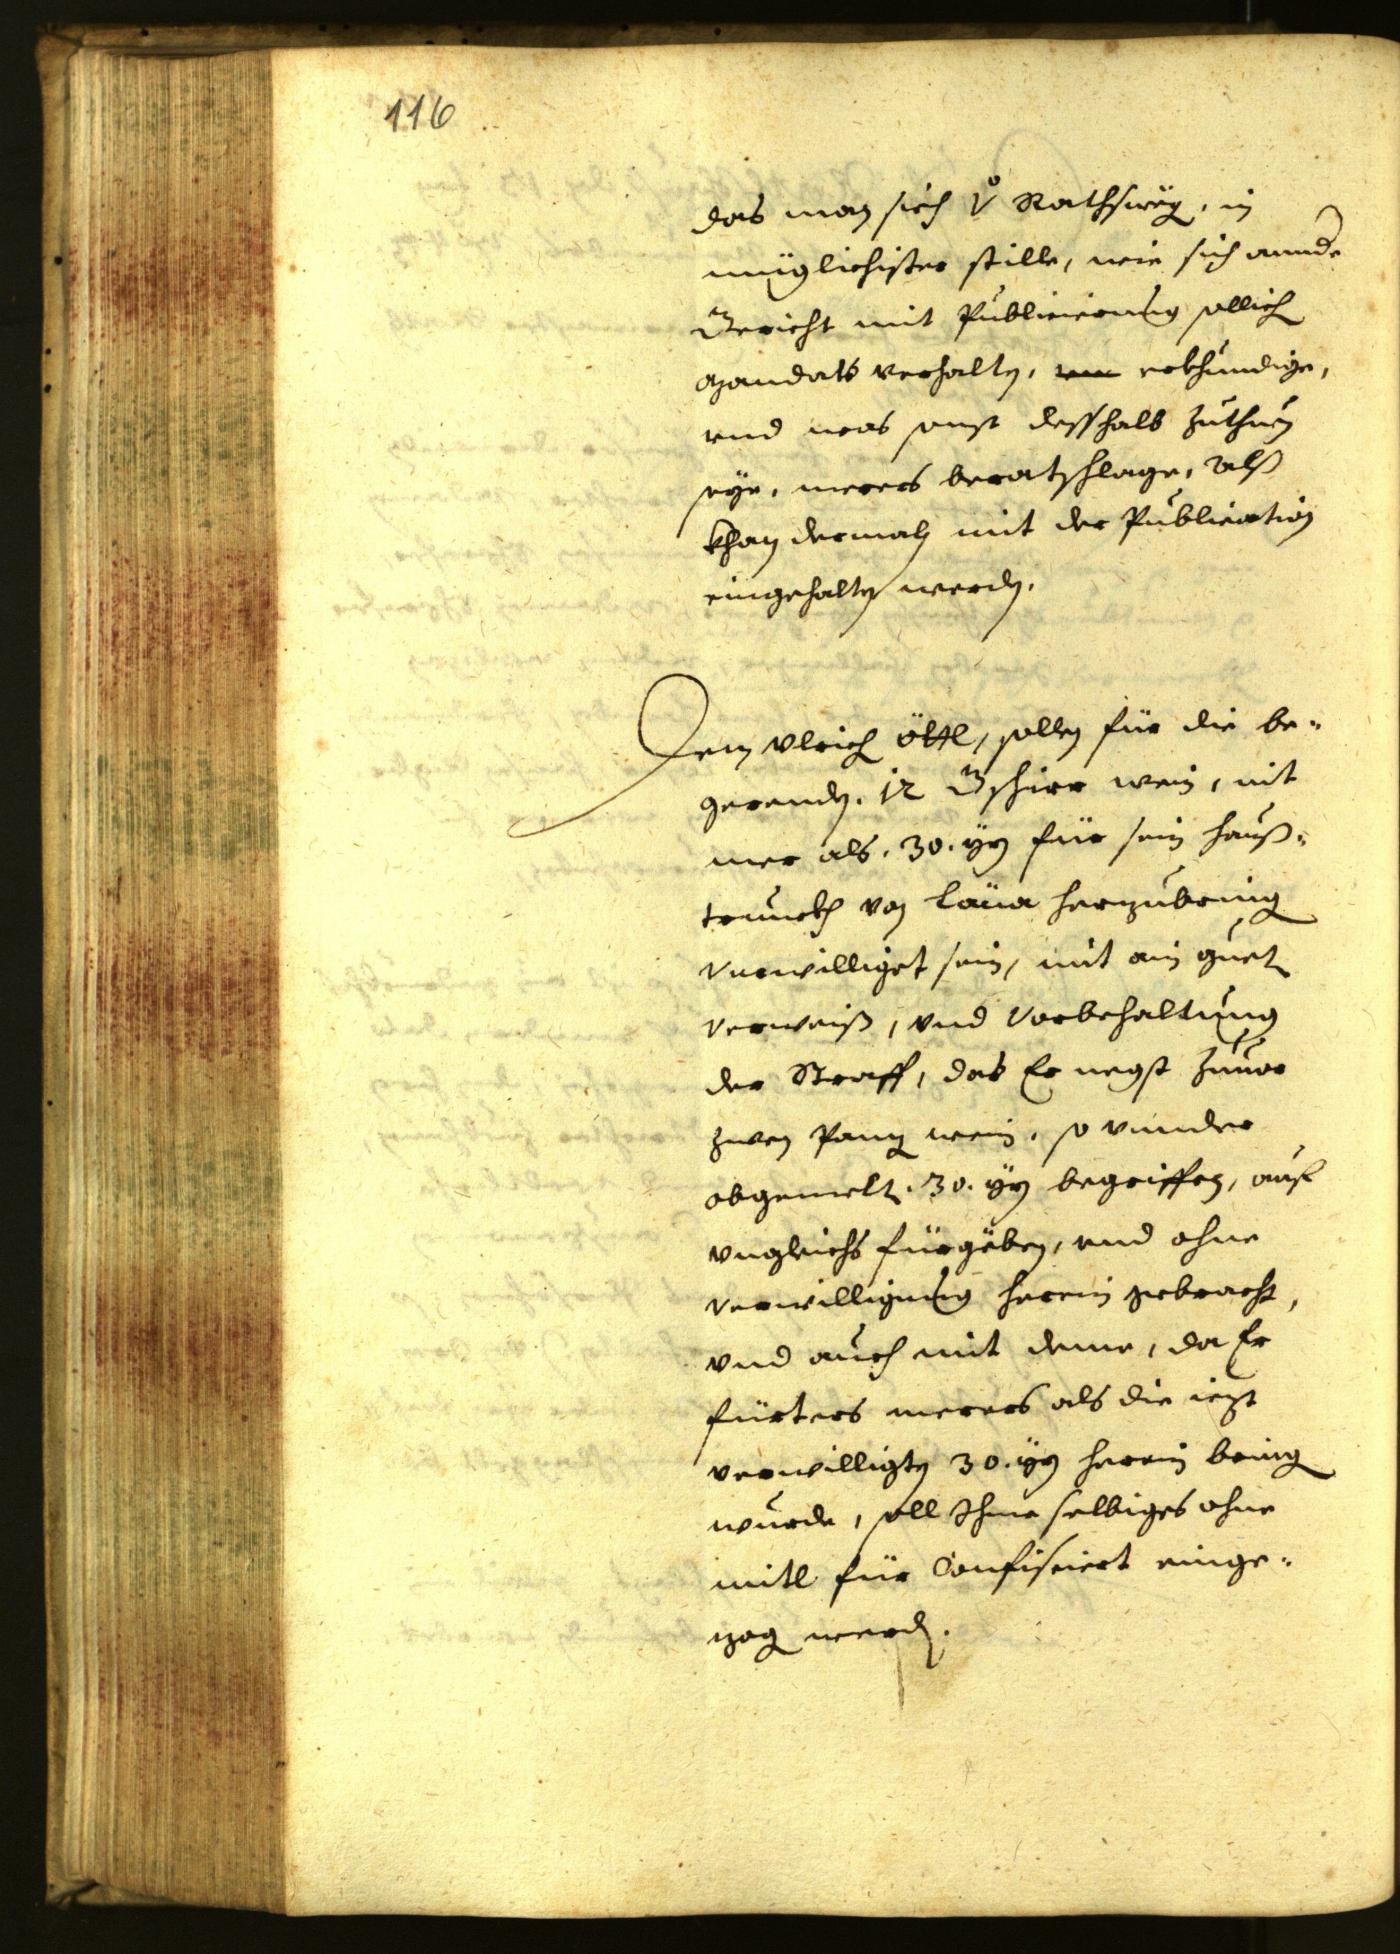 116
das man sich v Rathsweg, in
müglichister stille, wie sich annde
Gericht mit Publicierung sollich
Mandats verhalten, erkhundige,
vnd was sonst desshalb zuthuen
seye, merers beratschlage, Alß
khan dermaln mit der Publication
eingehalten werden.
Dem Vlrich Öttl, sollen für die be-
gerenden. 12 Gschirr wein, nit
mer als. 30. yrn für sein hauß-
trunckh von Laüa herzubring
verwilliget sein, mit ain guet
verweiß, vnd Vorbehaltung
der Straff, das Er negst zuuor
zwen Pann wein, so vnnder
obgemelt. 30. yrn begriffen, auf
vngleichs fürgeben, vnd ohne
verwilligung herein gebracht,
vnd auch mit deme, da Er
fürters merers als die iezt
verwilligten 30. yrn herein bring
wurde, soll Ihme selbiges ohne
mitl für Confisciert einge-
zog werden.